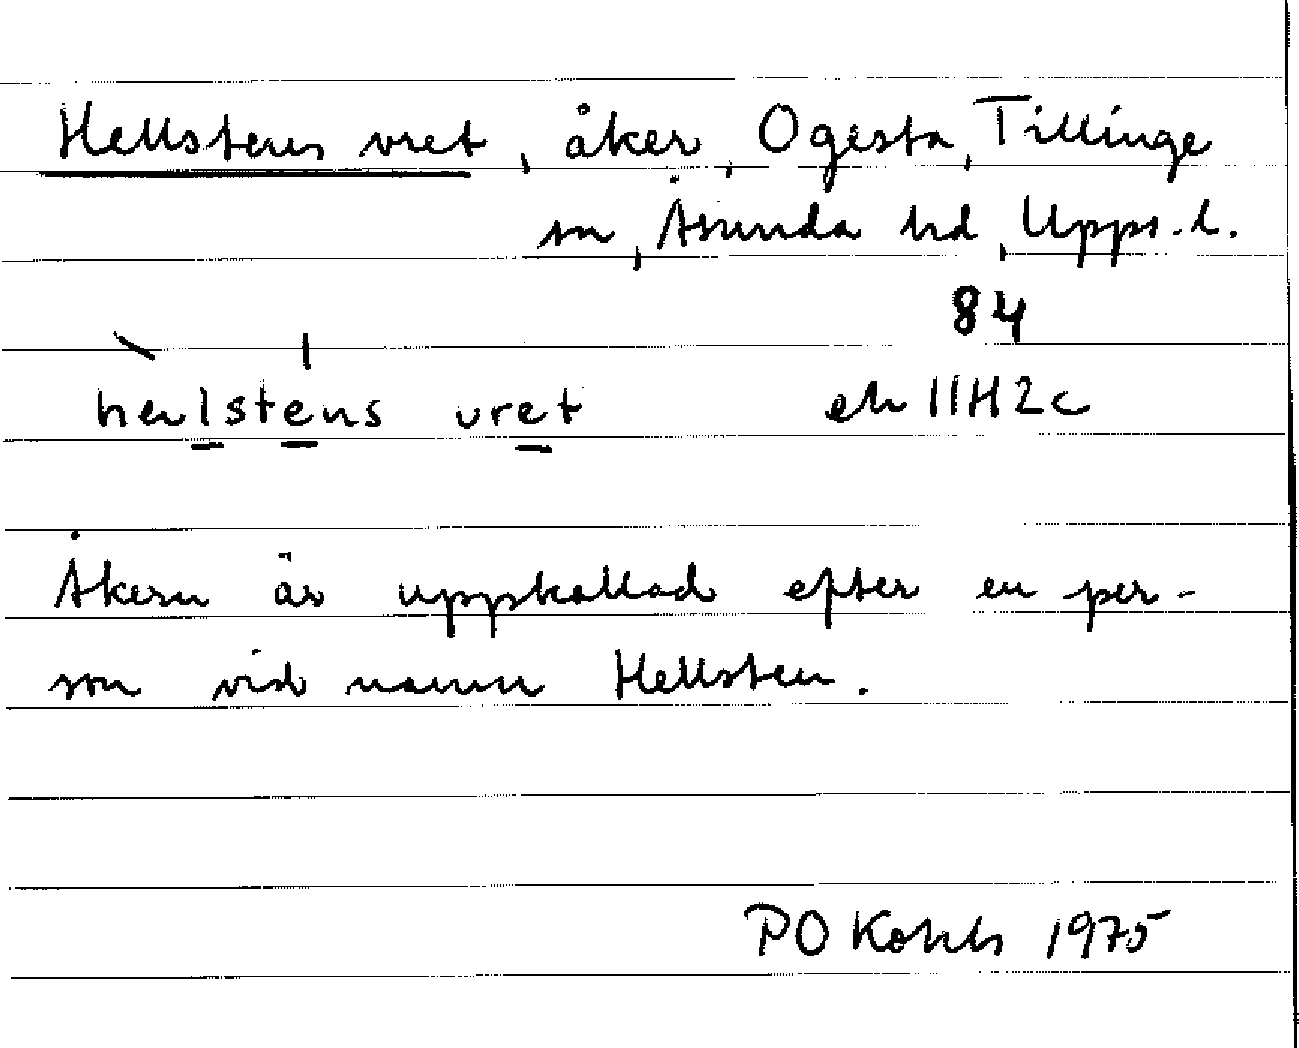 Hellstens vret, åker, Ogesta, Tillinge
sn, Åsunda hd, Upps. l.
84
ek 11H2c
vret
Åkern är uppkallad efter en per-
son vid namn Hellsten.
PO 1975